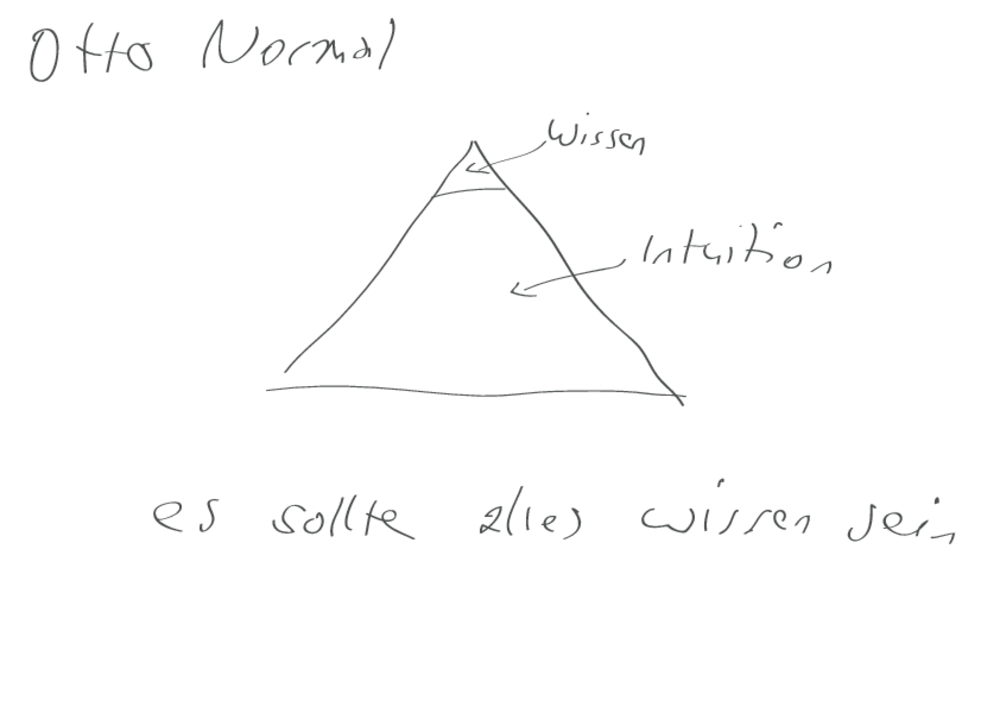 Otto Normal
Wissen
Intuition
es sollte alles wissen sein